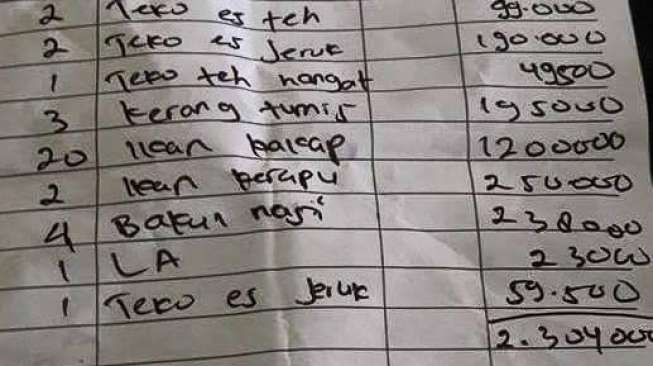 2 Teko es teh 99.000
2 Teko es Jeruk 190.000
1 Teko teh hangat 49500
3 kerang tumis 195000
20 Ikan bakap 1200000
2 Ikan kerapu 250.000
4 Bakul nasi 238000
1 LA 23000
1 Teko es Jeruk 59.500
2.304000